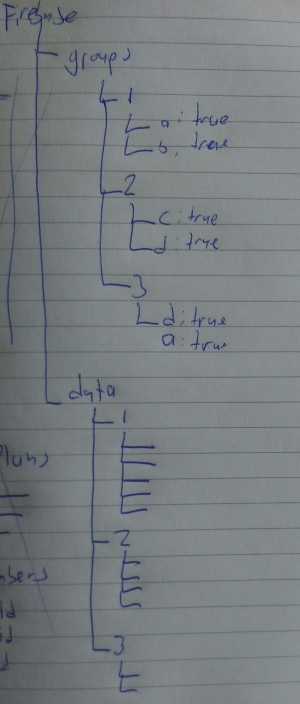 groups
1
a: true
b: true
2
c: true
d: true
3
d: true
a: true
data
1
2
3